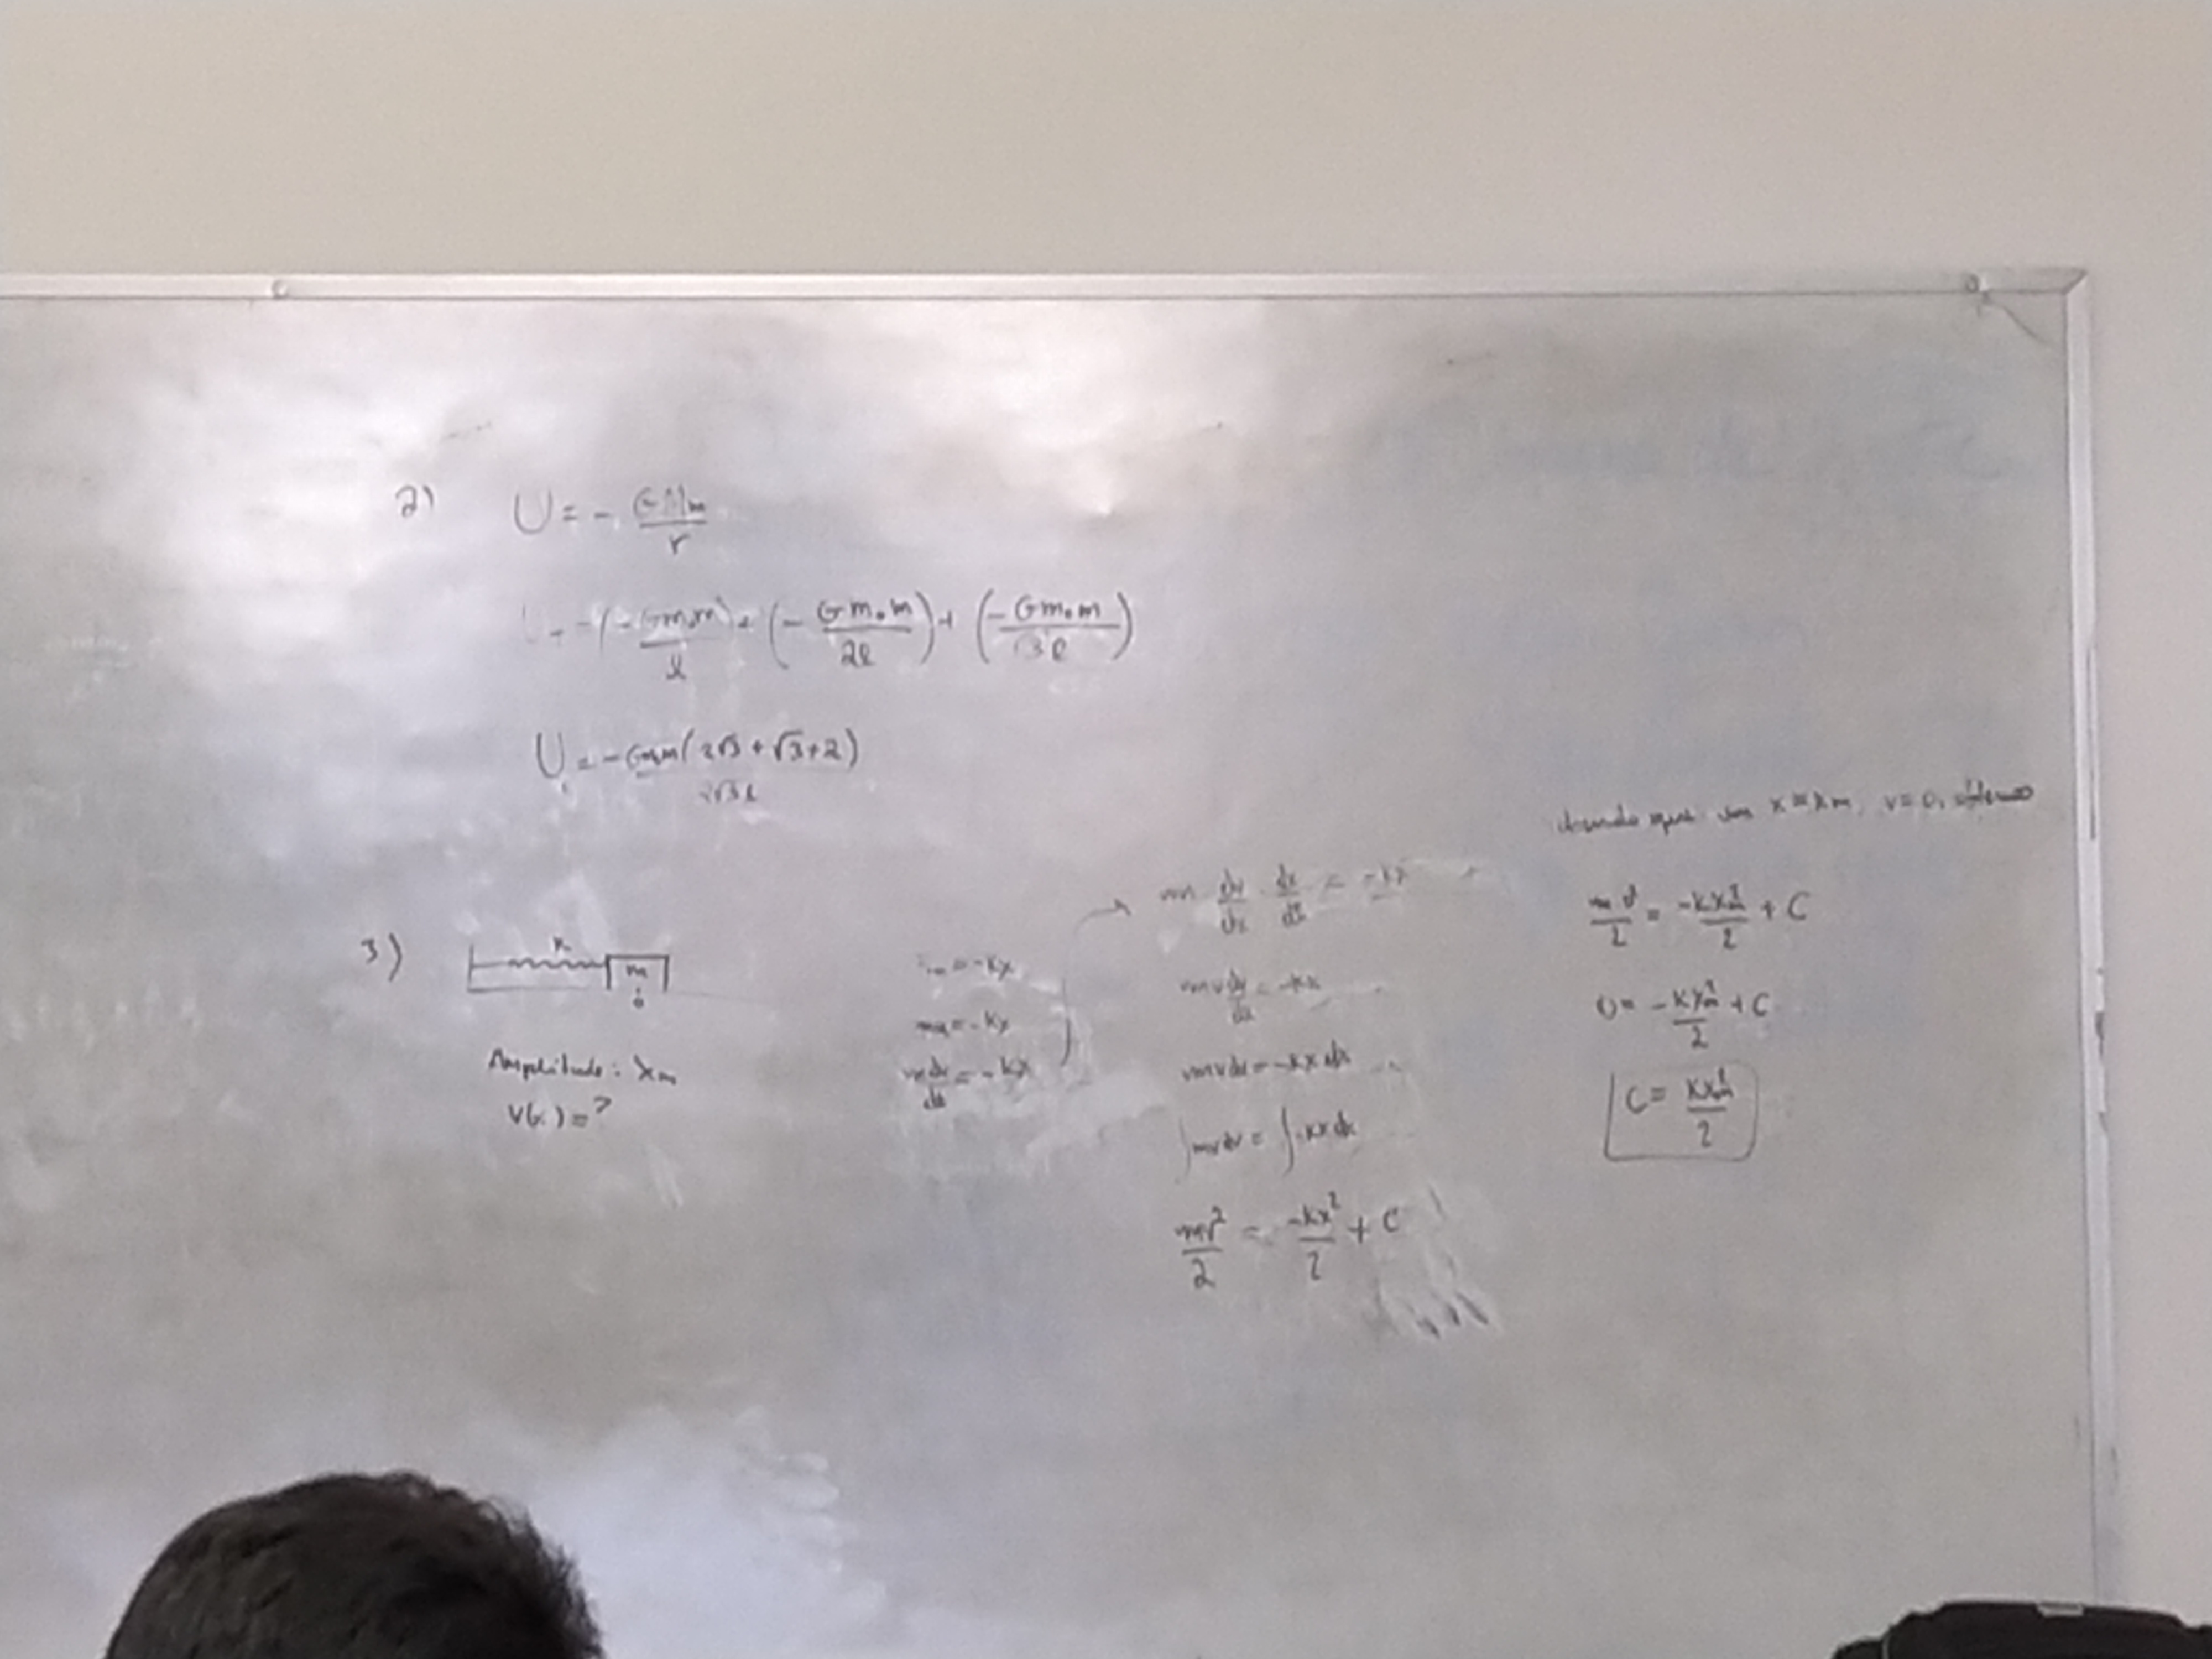 2) U = - GMm/r
U = -(-Gm₀m/ℓ) + (- Gm₀m/2ℓ) + (- Gm₀m/√3ℓ)
U = -Gm₀m(2√3 + √3 + 2)/2√3ℓ
3) m
0
Amplitude: xₘ
V(x) = ?
= -kx
ma = -kx
m dv/dt = -kx
m dv/dx · dx/dt = -kx
mv dv/dx = -kx
mvdv = -kx dx
∫mvdv = ∫-kx dx
mv²/2 = -kx²/2 + C
que em x = xₘ, v = 0,
m 0²/2 = -kxₘ²/2 + C
0 = -kxₘ²/2 + C
C = kxₘ²/2